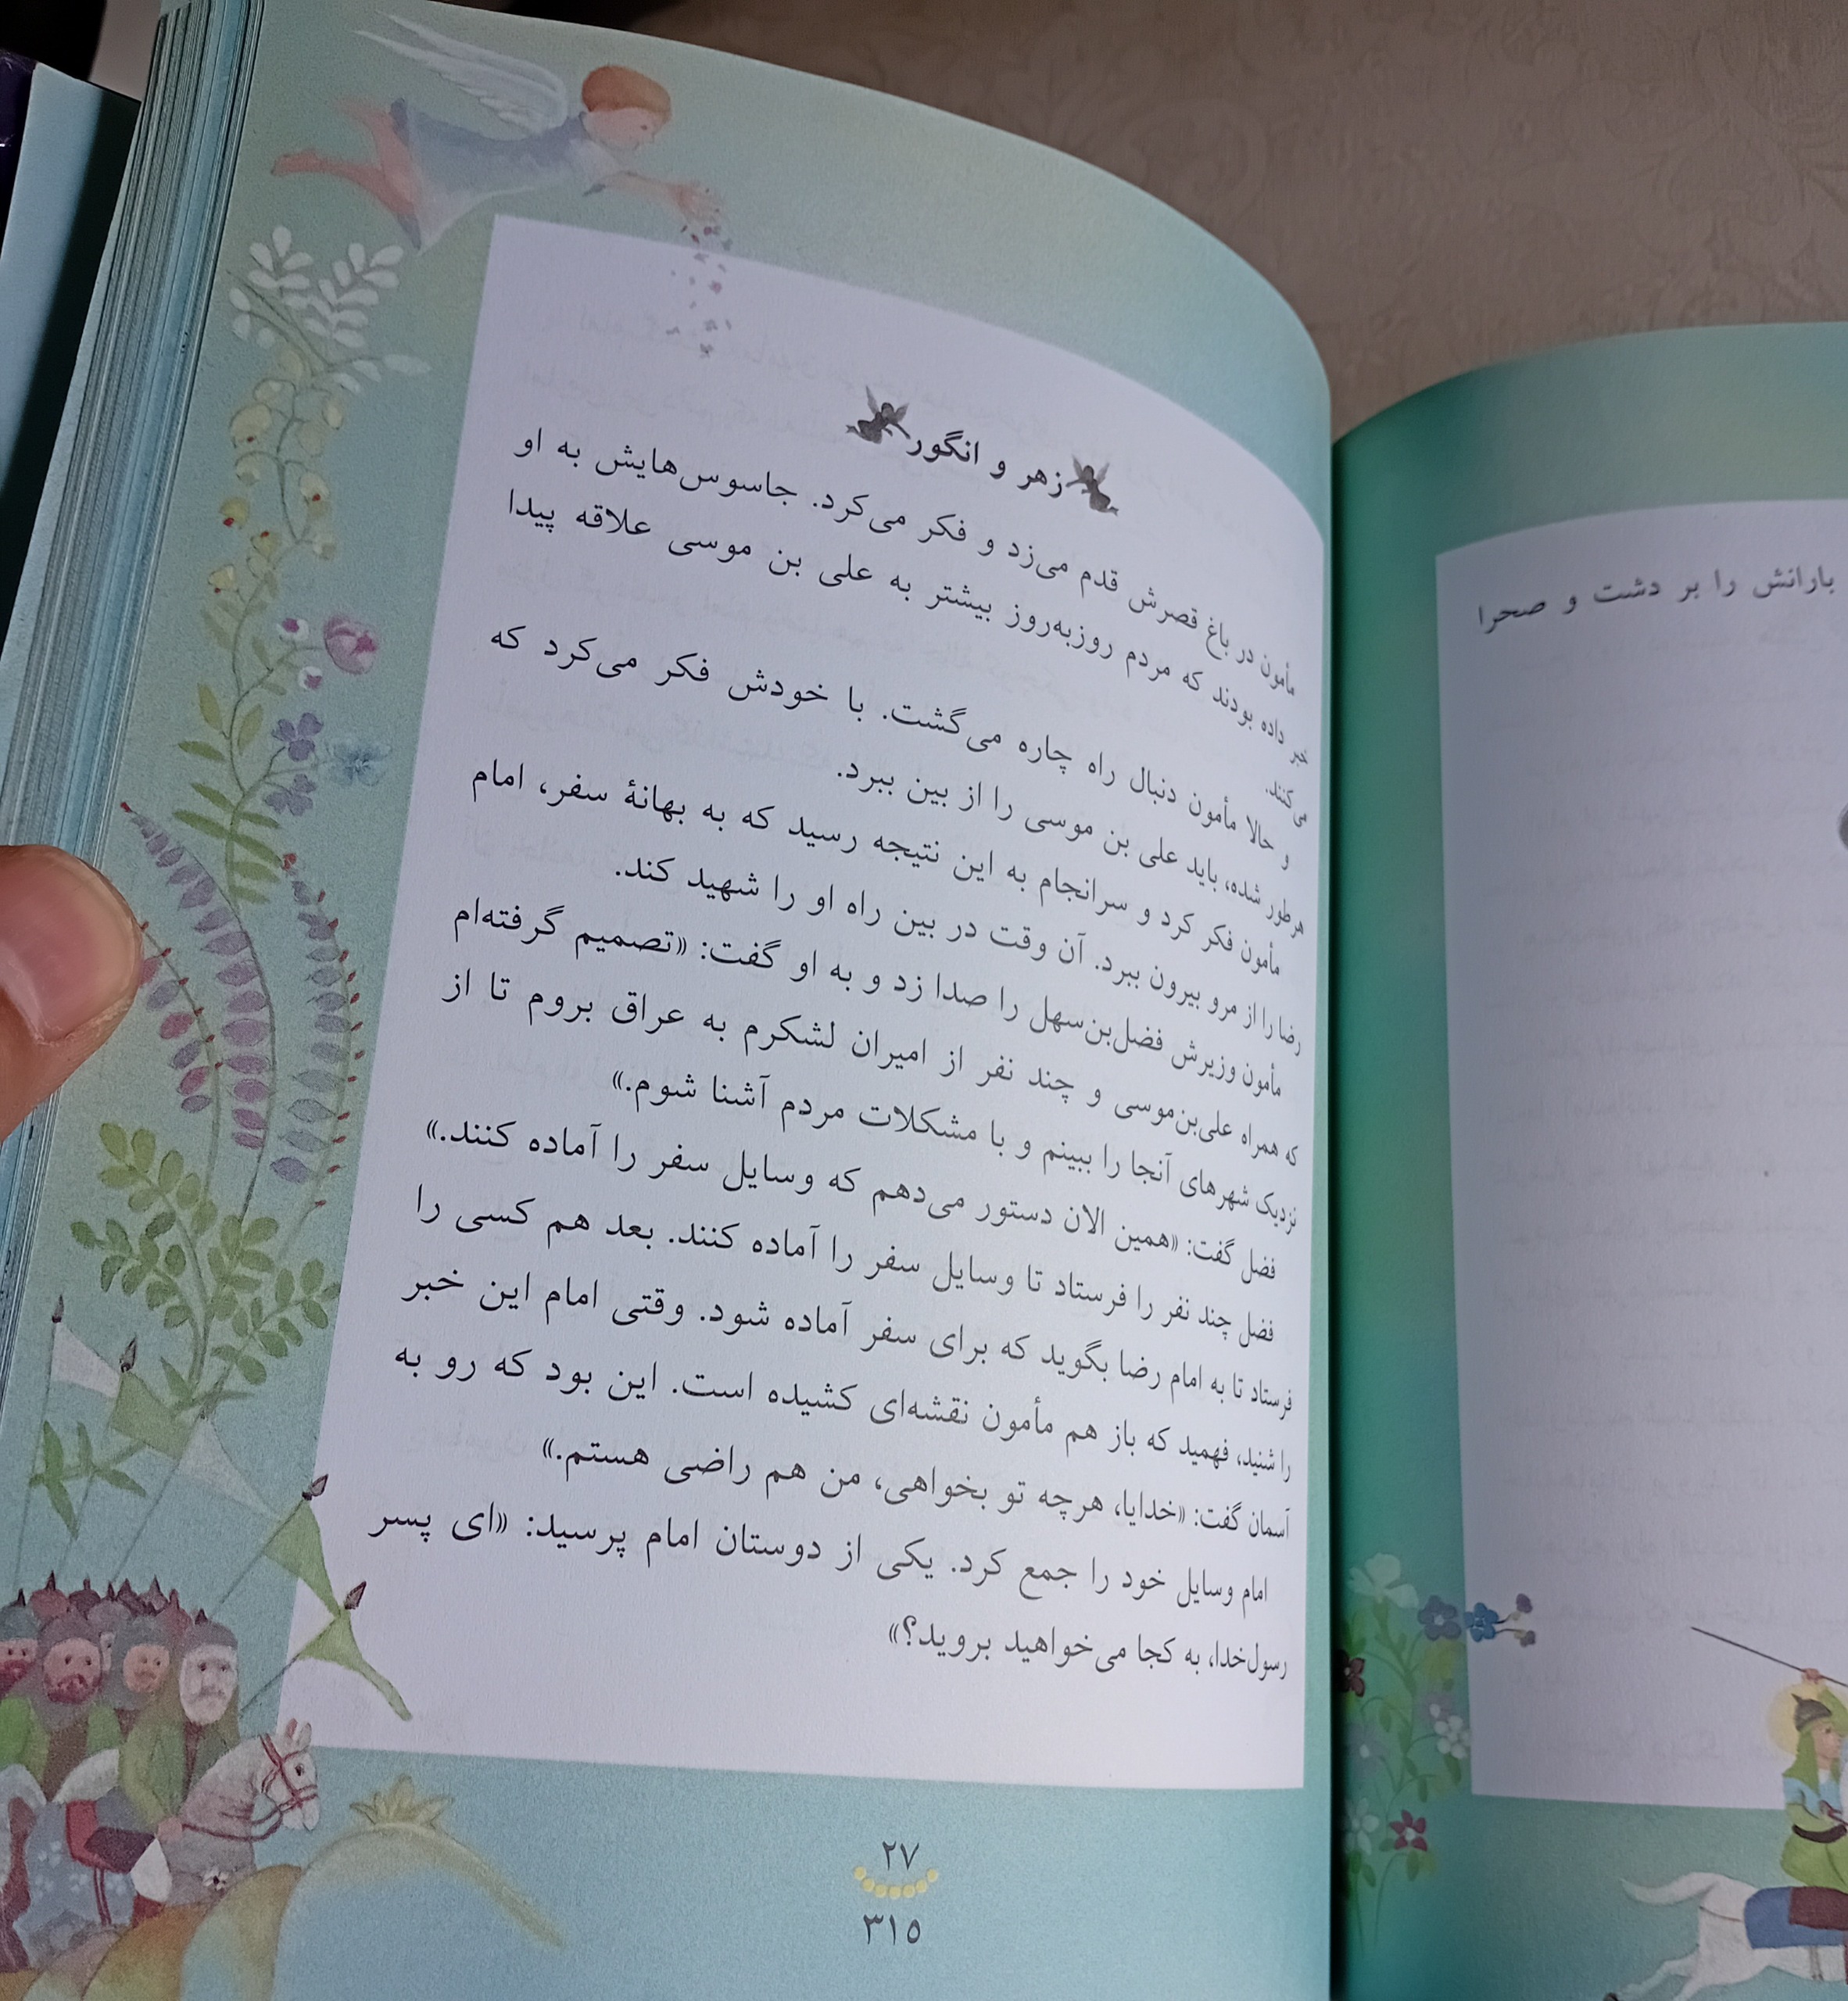 زهر و انگور
مأمون در باغ قصرش قدم می‌زد و فکر می‌کرد. جاسوس‌هایش به او
خبر داده بودند که مردم روزبه‌روز بیشتر به علی بن موسی علاقه پیدا
می‌کنند.
و حالا مأمون دنبال راه چاره می‌گشت. با خودش فکر می‌کرد که
هرطور شده، باید علی بن موسی را از بین ببرد.
مأمون فکر کرد و سرانجام به این نتیجه رسید که به بهانهٔ سفر، امام
رضا را از مرو بیرون ببرد. آن وقت در بین راه او را شهید کند.
مأمون وزیرش فضل‌بن‌سهل را صدا زد و به او گفت: «تصمیم گرفته‌ام
که همراه علی‌بن‌موسی و چند نفر از امیران لشکرم به عراق بروم تا از
نزدیک شهرهای آنجا را ببینم و با مشکلات مردم آشنا شوم.»
فضل گفت: «همین الان دستور می‌دهم که وسایل سفر را آماده کنند.»
فضل چند نفر را فرستاد تا وسایل سفر را آماده کنند. بعد هم کسی را
فرستاد تا به امام رضا بگوید که برای سفر آماده شود. وقتی امام این خبر
را شنید، فهمید که باز هم مأمون نقشه‌ای کشیده است. این بود که رو به
آسمان گفت: «خدایا، هرچه تو بخواهی، من هم راضی هستم.»
امام وسایل خود را جمع کرد. یکی از دوستان امام پرسید: «ای پسر
رسول‌خدا، به کجا می‌خواهید بروید؟»
۲۷
۳۱۵
بارانش را بر دشت و صحرا